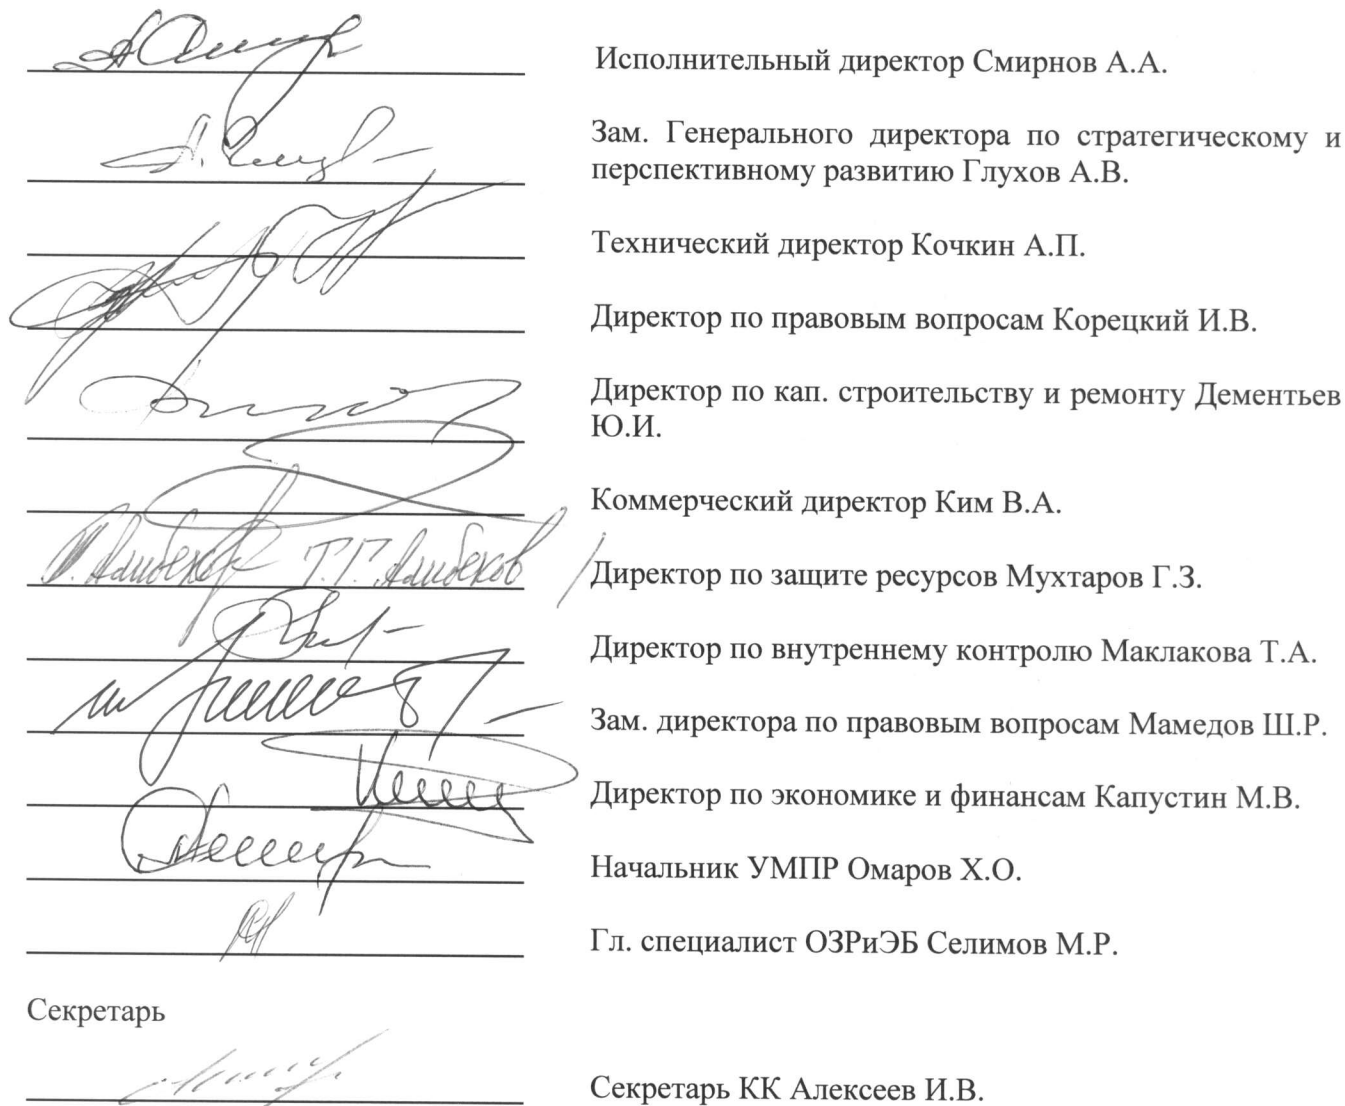 Исполнительный директор Смирнов А.А.
Зам. Генерального директора по стратегическому и
перспективному развитию Глухов А.В.
Технический директор Кочкин А.П.
Директор по правовым вопросам Корецкий И.В.
Директор по кап. строительству и ремонту Дементьев
Ю.И.
Коммерческий директор Ким В.А.
Т.Г. Алибеков / Директор по защите ресурсов Мухтаров Г.З.
Директор по внутреннему контролю Маклакова Т.А.
Зам. директора по правовым вопросам Мамедов Ш.Р.
Директор по экономике и финансам Капустин М.В.
Начальник УМПР Омаров Х.О.
Гл. специалист ОЗРиЭБ Селимов М.Р.
Секретарь
Секретарь КК Алексеев И.В.